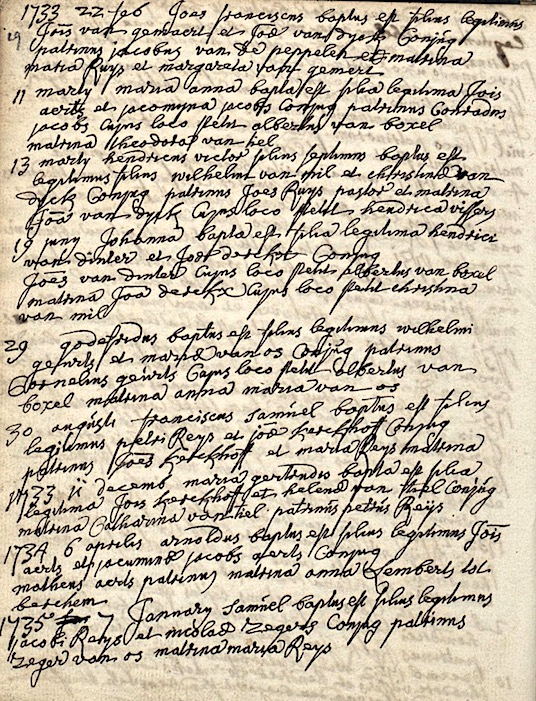 1733 22 feb Joes franciscus baptus est filius legitimus
Jois van gemaert et Joæ van dyck Conjug
patrinus jacobus van de peppelen et matrina
maria Ruys et margareta van gemert
11 marty maria anna bapta est filia legitima Jois
aerts et jacomyna jacobs Conjug patrinus Conradus
jacobs Cujus loco stetit albertus van boxel
matrina theodora van hel
13 marty hendricus victor filius septimus baptus est
legitimus filius wilhelmi van mil et christinæ van
dyck Conjug patrinus Joes Ruys pastor et matrina
Joã van dyck Cujus loco stetit hendrica vissers
19 juny Johanna bapta est filia legitima hendrici
van dinter et derckx Conjug
Joes van dinter Cujus loco stetit albertus van boxel
matrina Joã derckx Cujus loco stetit christina
van mil
29 godefridus baptus est filius legitimus wilhelmi
geurts et mariæ van os Conjug patrinus
Cornelius geurts Cujus loco stetit albertus van
boxel matrina anna maria van os
30 augusti franciscus samuel baptus est filius
legitimus petri Reys et joæ kerckhoff Conjug
patrinus Joes kerckhoff et maria Reys matrina
1733 11 decemb maria gertrudis bapta est filia
legitima Jois kerckhoff et helenæ van Conjug
matrina Catharina van hel patrinus petrus Reys
1734 6 aprilis arnoldus baptus est filius legitimus Jois
aerts et jacuminæ jacobs aerts Conjug
matheus aerts patrinus matrina anna Lemberts tot
berchem
1735 7 January samuel baptus est filius legitimus
jacobi Reys et nicolaæ zegers Conjug patrinus
zeger van os matrina maria Reys